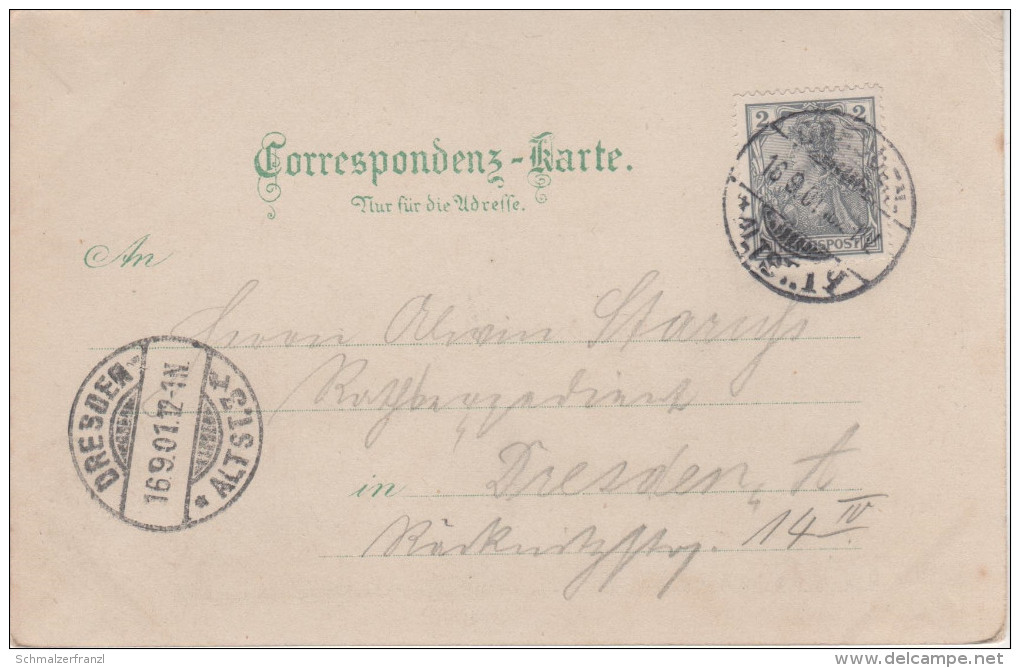 Correspondenz-Karte.
Nur für die Adresse.
An
2 2
REICHSPOST
16.9.01.
ALTST. 1
Herrn Alwin
in Dresden, A
Räcknitzstr. 14 IV
DRESDEN
16.9.01.12-1N.
* ALTST. 1
Schmalzerfranzl
delcampe.net